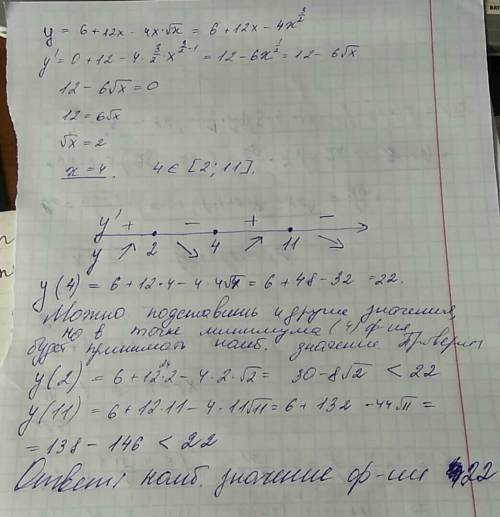 y = 6 + 12x - 4x·√x = 6 + 12x - 4x^{3/2}
y' = 0 + 12 - 4·3/2·x^{3/2-1} = 12 - 6x^{1/2} = 12 - 6√x
12 - 6√x = 0
12 = 6√x
√x = 2
x = 4. 4 ∈ [2; 11].
y' + - + -
y ↗ 2 ↘ 4 ↗ 11 ↘
y(4) = 6 + 12·4 - 4·4√4 = 6 + 48 - 32 = 22.
Можно подставить и другие значения,
но в точке минимума (4) ф-ия
будет принимать наиб. значение Проверим
y(2) = 6 + 12·2 - 4·2·√2 = 30 - 8√2 < 22
y(11) = 6 + 12·11 - 4·11√11 = 6 + 132 - 44√11 =
= 138 - 146 < 22
Ответ: наиб. значение ф-ии 22